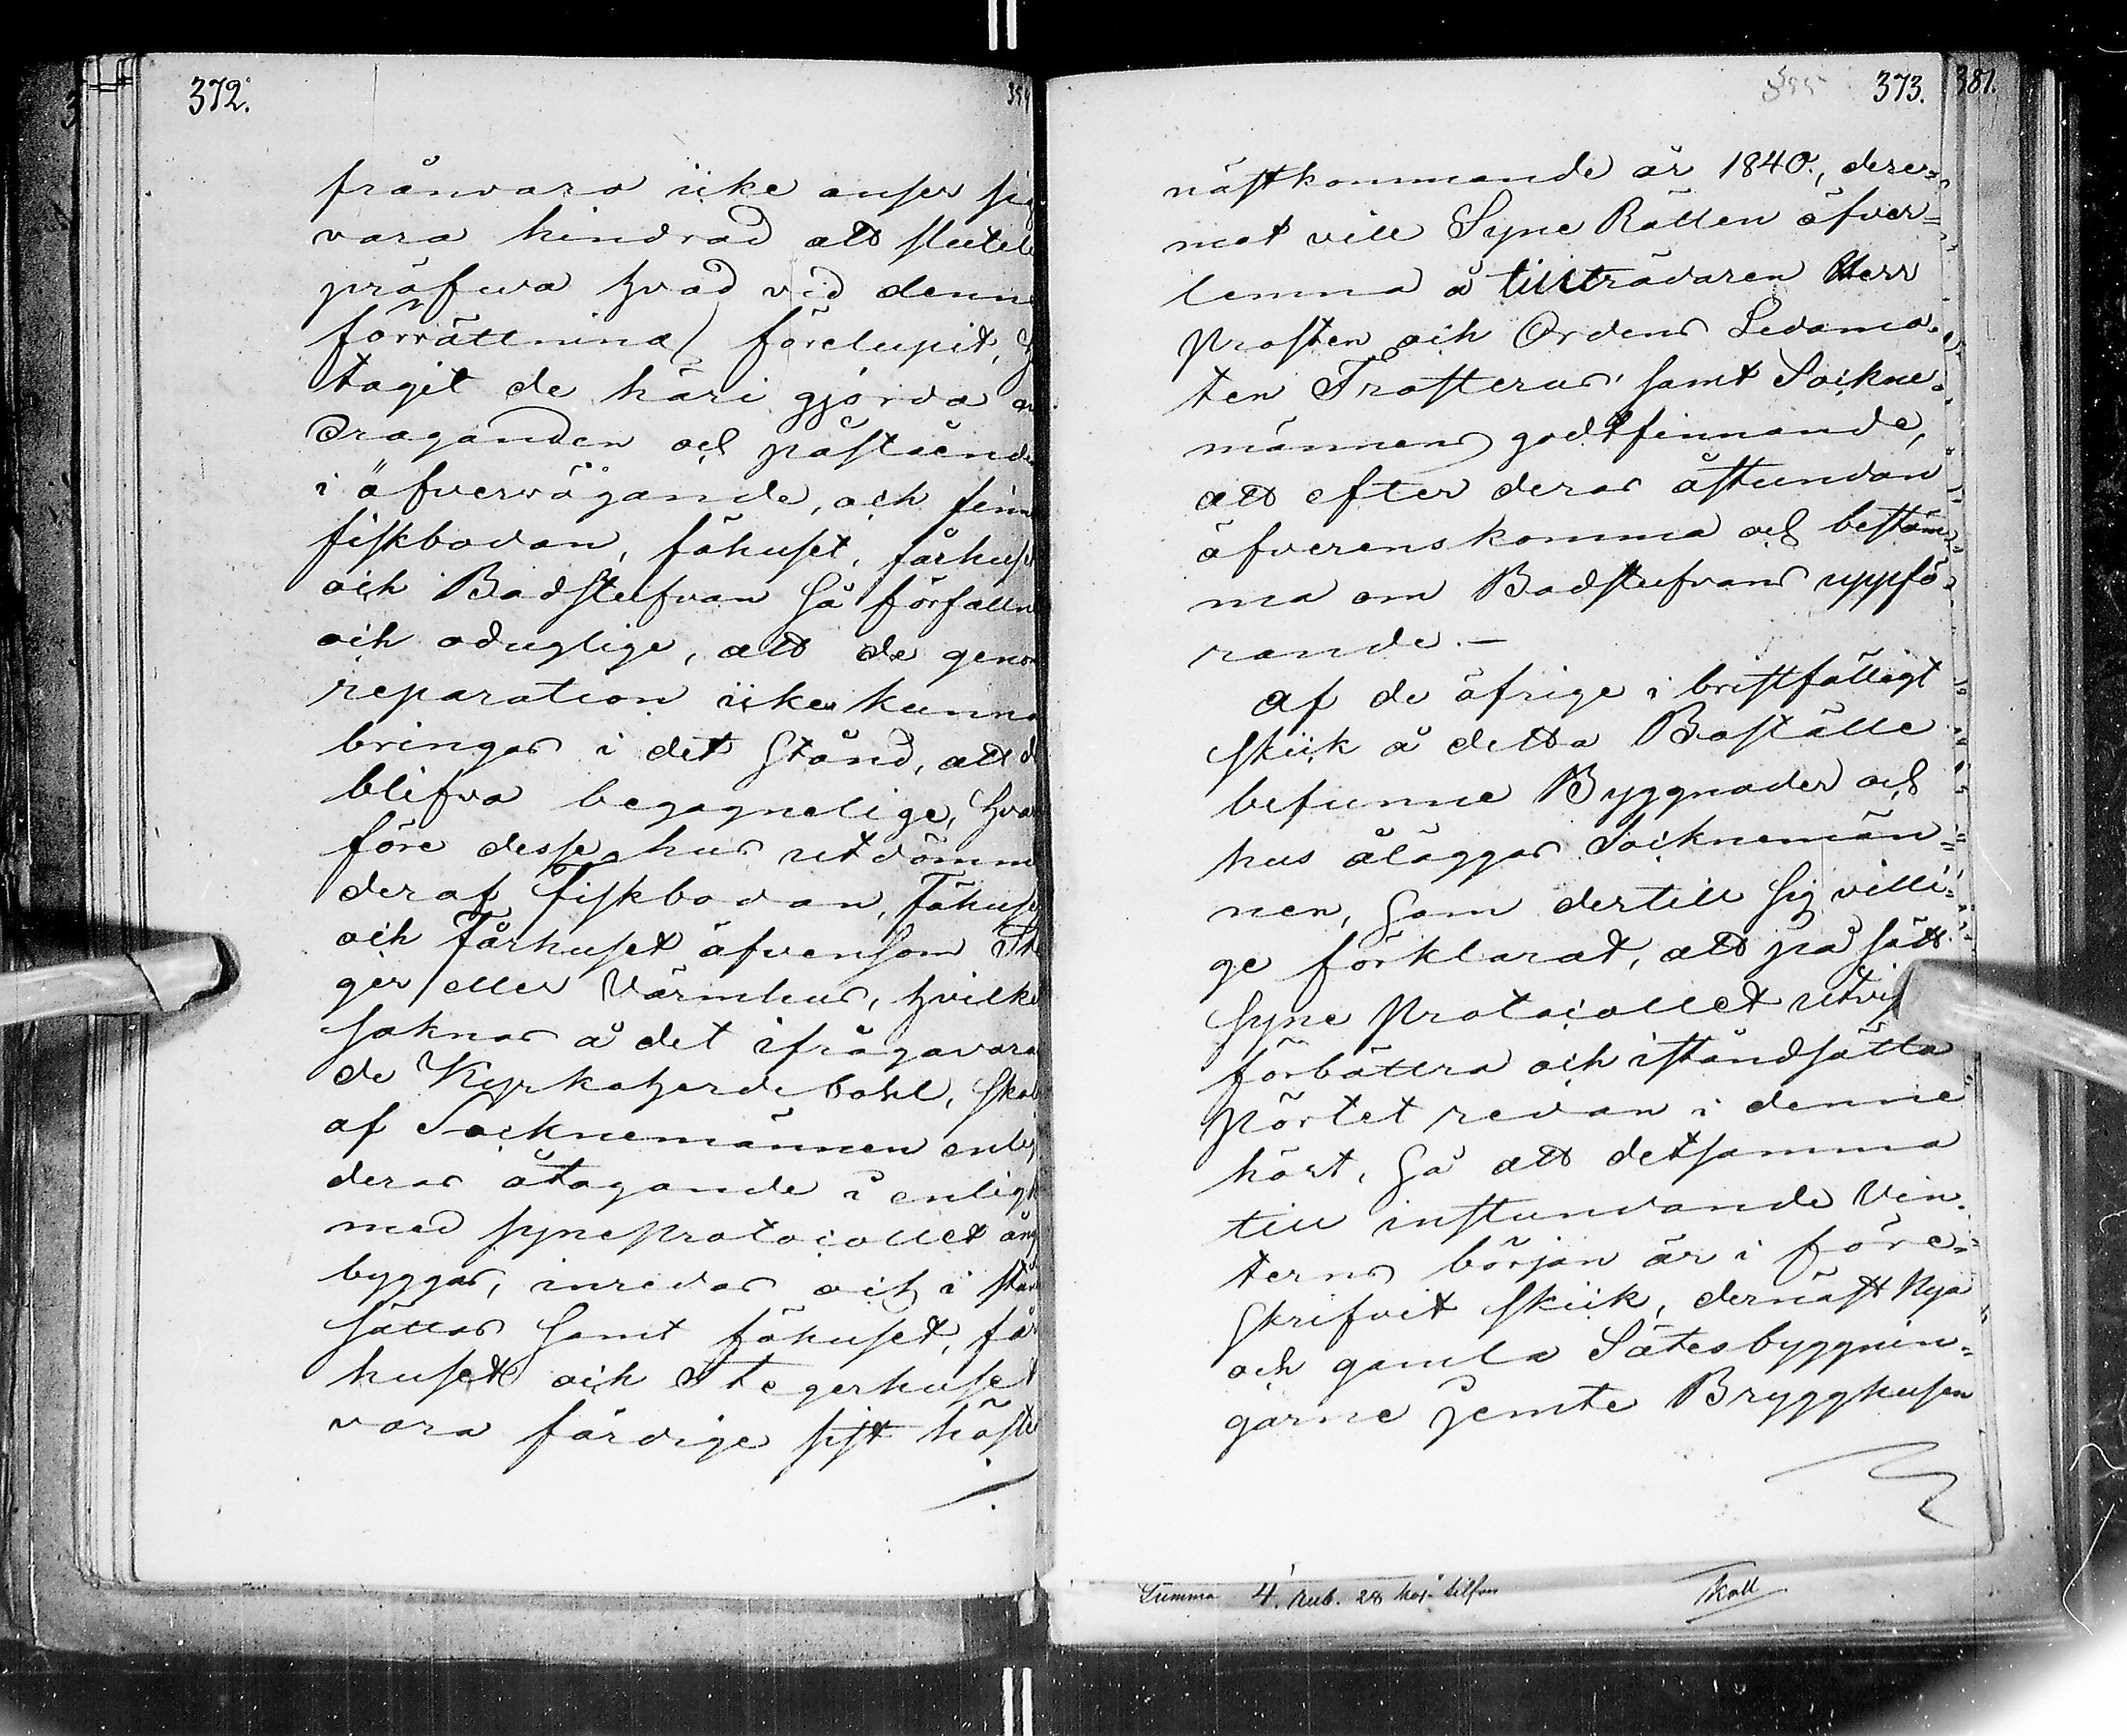 372.
frånvaro icke anser sig
vara hindrad att slutel
pröfva hvad vid denn
förrättning förelupit, h
tagit de häri gjorda an
draganden och påståend
i öfvervägande, och finn
fiskbodan, fähuset, fårhus
och Badstufvan så förfalln
och oduglige, att de genom
reparation icke kunna
bringas i det stånd, att d
blifva begagnelige, hvar
före desse hus utdömm
deraf Fiskbodan, Fähuse
och Fårhuset äfvensom Ste
ger eller Värmhus, hvilke
saknas å det ifrågavara
de Kyrkoherdebohl, skol
af Socknemännen enl.
deras åtagande i enligh
med syneprotocollet ån
byggas, inredas och i stån
sättas samt fähuset, får
huset och Stegerhuset
vara färdige sist höste
373.
381.
nästkommande år 1840., dere=
mot vill Syne Rätten öfver=
lemna å tillträdaren Herr
Prosten och Ordens Ledamo=
ten Frosterus' samt Sockne=
männens godtfinnande,
att efter deras åstundan
öfverenskomma och bestäm=
ma om Badstufvans uppfö=
rande.—
Af de öfrige i bristfälligt
skick å detta Boställe
befunne Byggnader och
hus åläggas Socknemän=
nen, som dertill sig villi=
ge förklarat, att på sätt
syne Protocollet utvis
förbättra och iståndsätta
Pörtet redan i denne
höst, så att detsamma
till instundande Vin=
terns början är i före=
skrifvit skick, dernäst Nya
och gamla Sätesbyggnin=
garne jemte Brygghusen
Summa 4. Rub. 28 kop. silfver